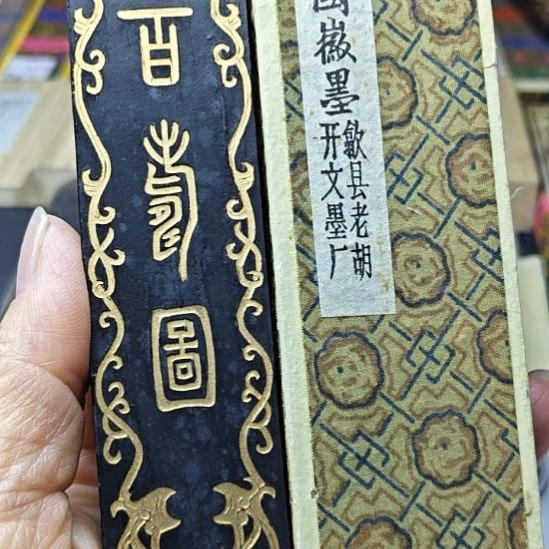 百壽圖
徽墨
歙县老胡
开文墨厂